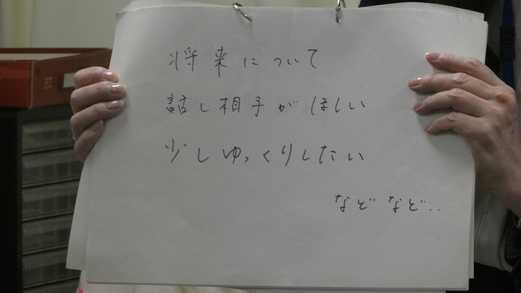 将来について
話し相手がほしい
少しゆっくりしたい
などなど..